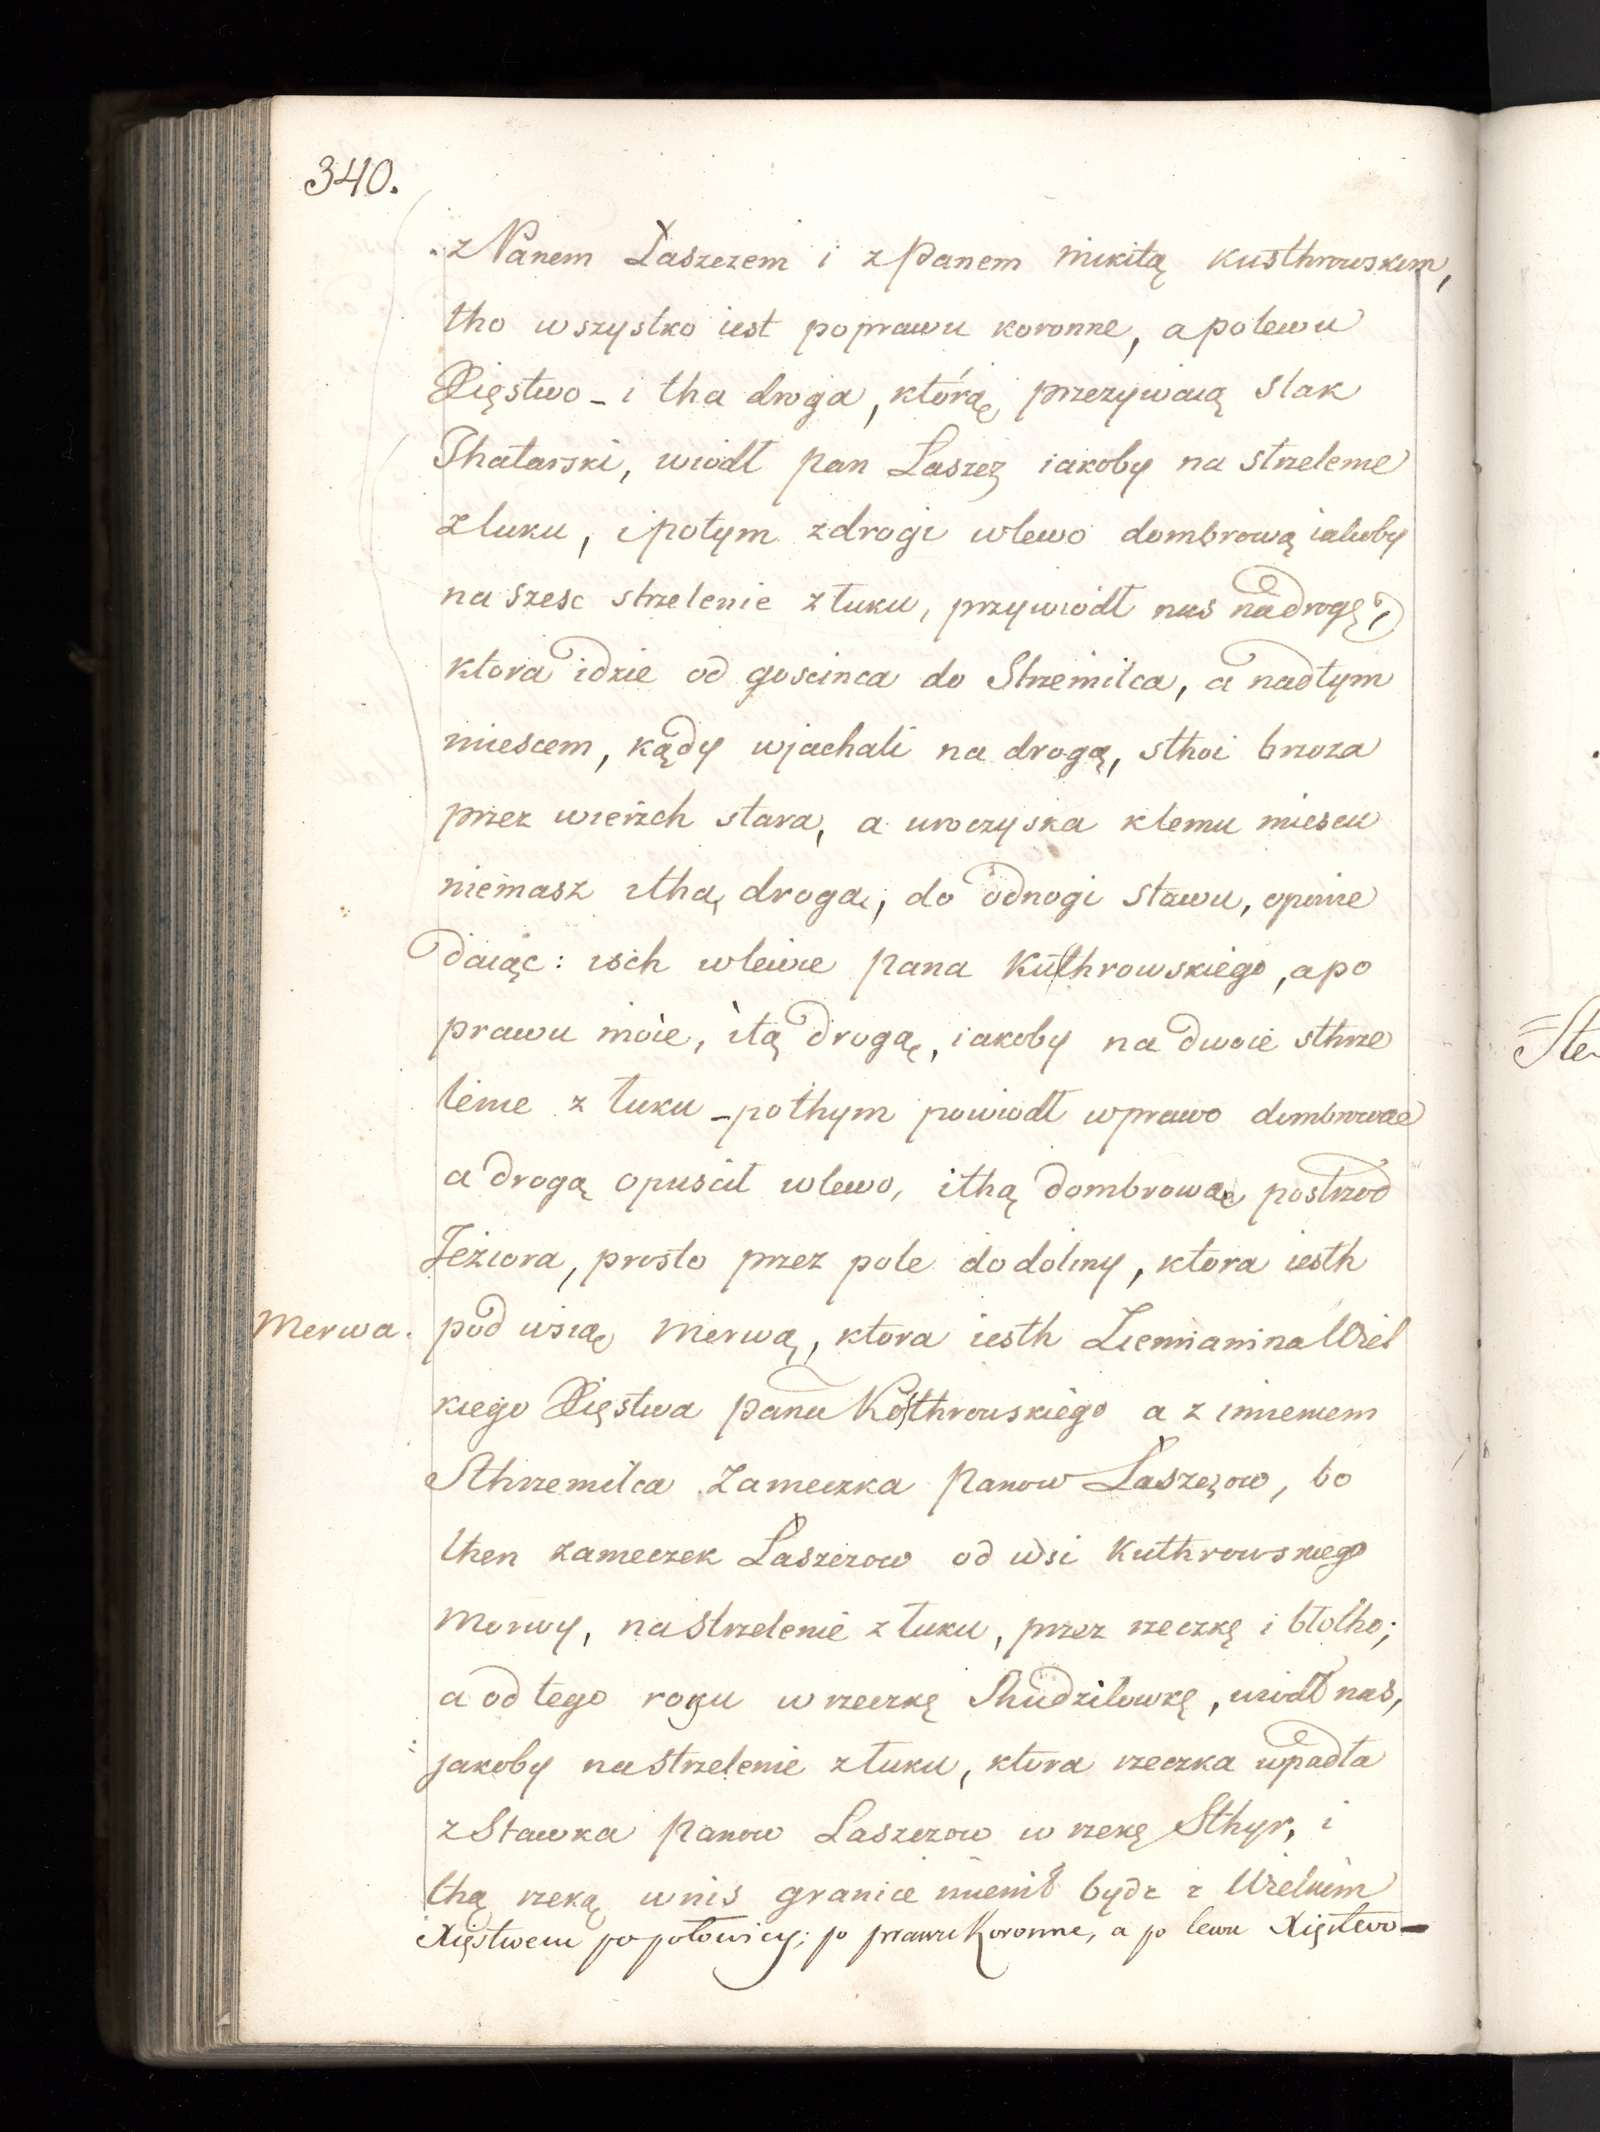 340.
z Panem Łaszczem i z panem mikitą kusthrowskim,
tho wszystko iest poprawu koronne, a polewu
Xięstwo - i tha droga, którąę przezywaią slak
Thatarski, wiodł pan Laszcz iakoby na strzelenie
zluku, ipotym zdrogi wlewo dombrową iakoby
na szesc strzelenie złuku, przywiodł nas nadrogę,
ktora idzie od goscinca do Strzemilca, a nadtym
miescem, kądy wjachali na drogą, sthoi brzoza
przez wierzch stara, a uroczyska ktemu miescu
niemasz ithą drogą, do odnogi stawu, opowie
daiąc: isch wlewie pana Kuthrowskiego, apo
prawu moie, itą drogąę, iakoby na dwoie sthrze
lenie z łuku - pothym powiodł wprawo dombrowaę
a drogą opuscił wlewo, ithą dombrowaę postrzod
Jeziora, prosto przez pole do doliny, ktora iesth
Merwa. pod wsiąę Merwą, ktora iesth Ziemianina Wiel
kiego Xięstwa pana Kosthrowskiego a z imieniem
Sthrzemilca Zameczka Panow Łaszczow, bo
then zameczek Łaszczow od wsi Kuthrowskiego
Merwy, na strzelenie z łuku, przez rzeczkę i błotho;
a od tego rogu w rzeczkę Shudzilowkę, wiodł nas,
jakoby na strzelenie złuku, ktora rzeczka wpadła
z Stawka Panow Laszczow w rzekę Sthyr, i
thą rzeką wnis granice mienił bydz z Wielkim
Xięstwem po połowicy; po prawu Koronne, a po lewu Xięstwo-
Ste